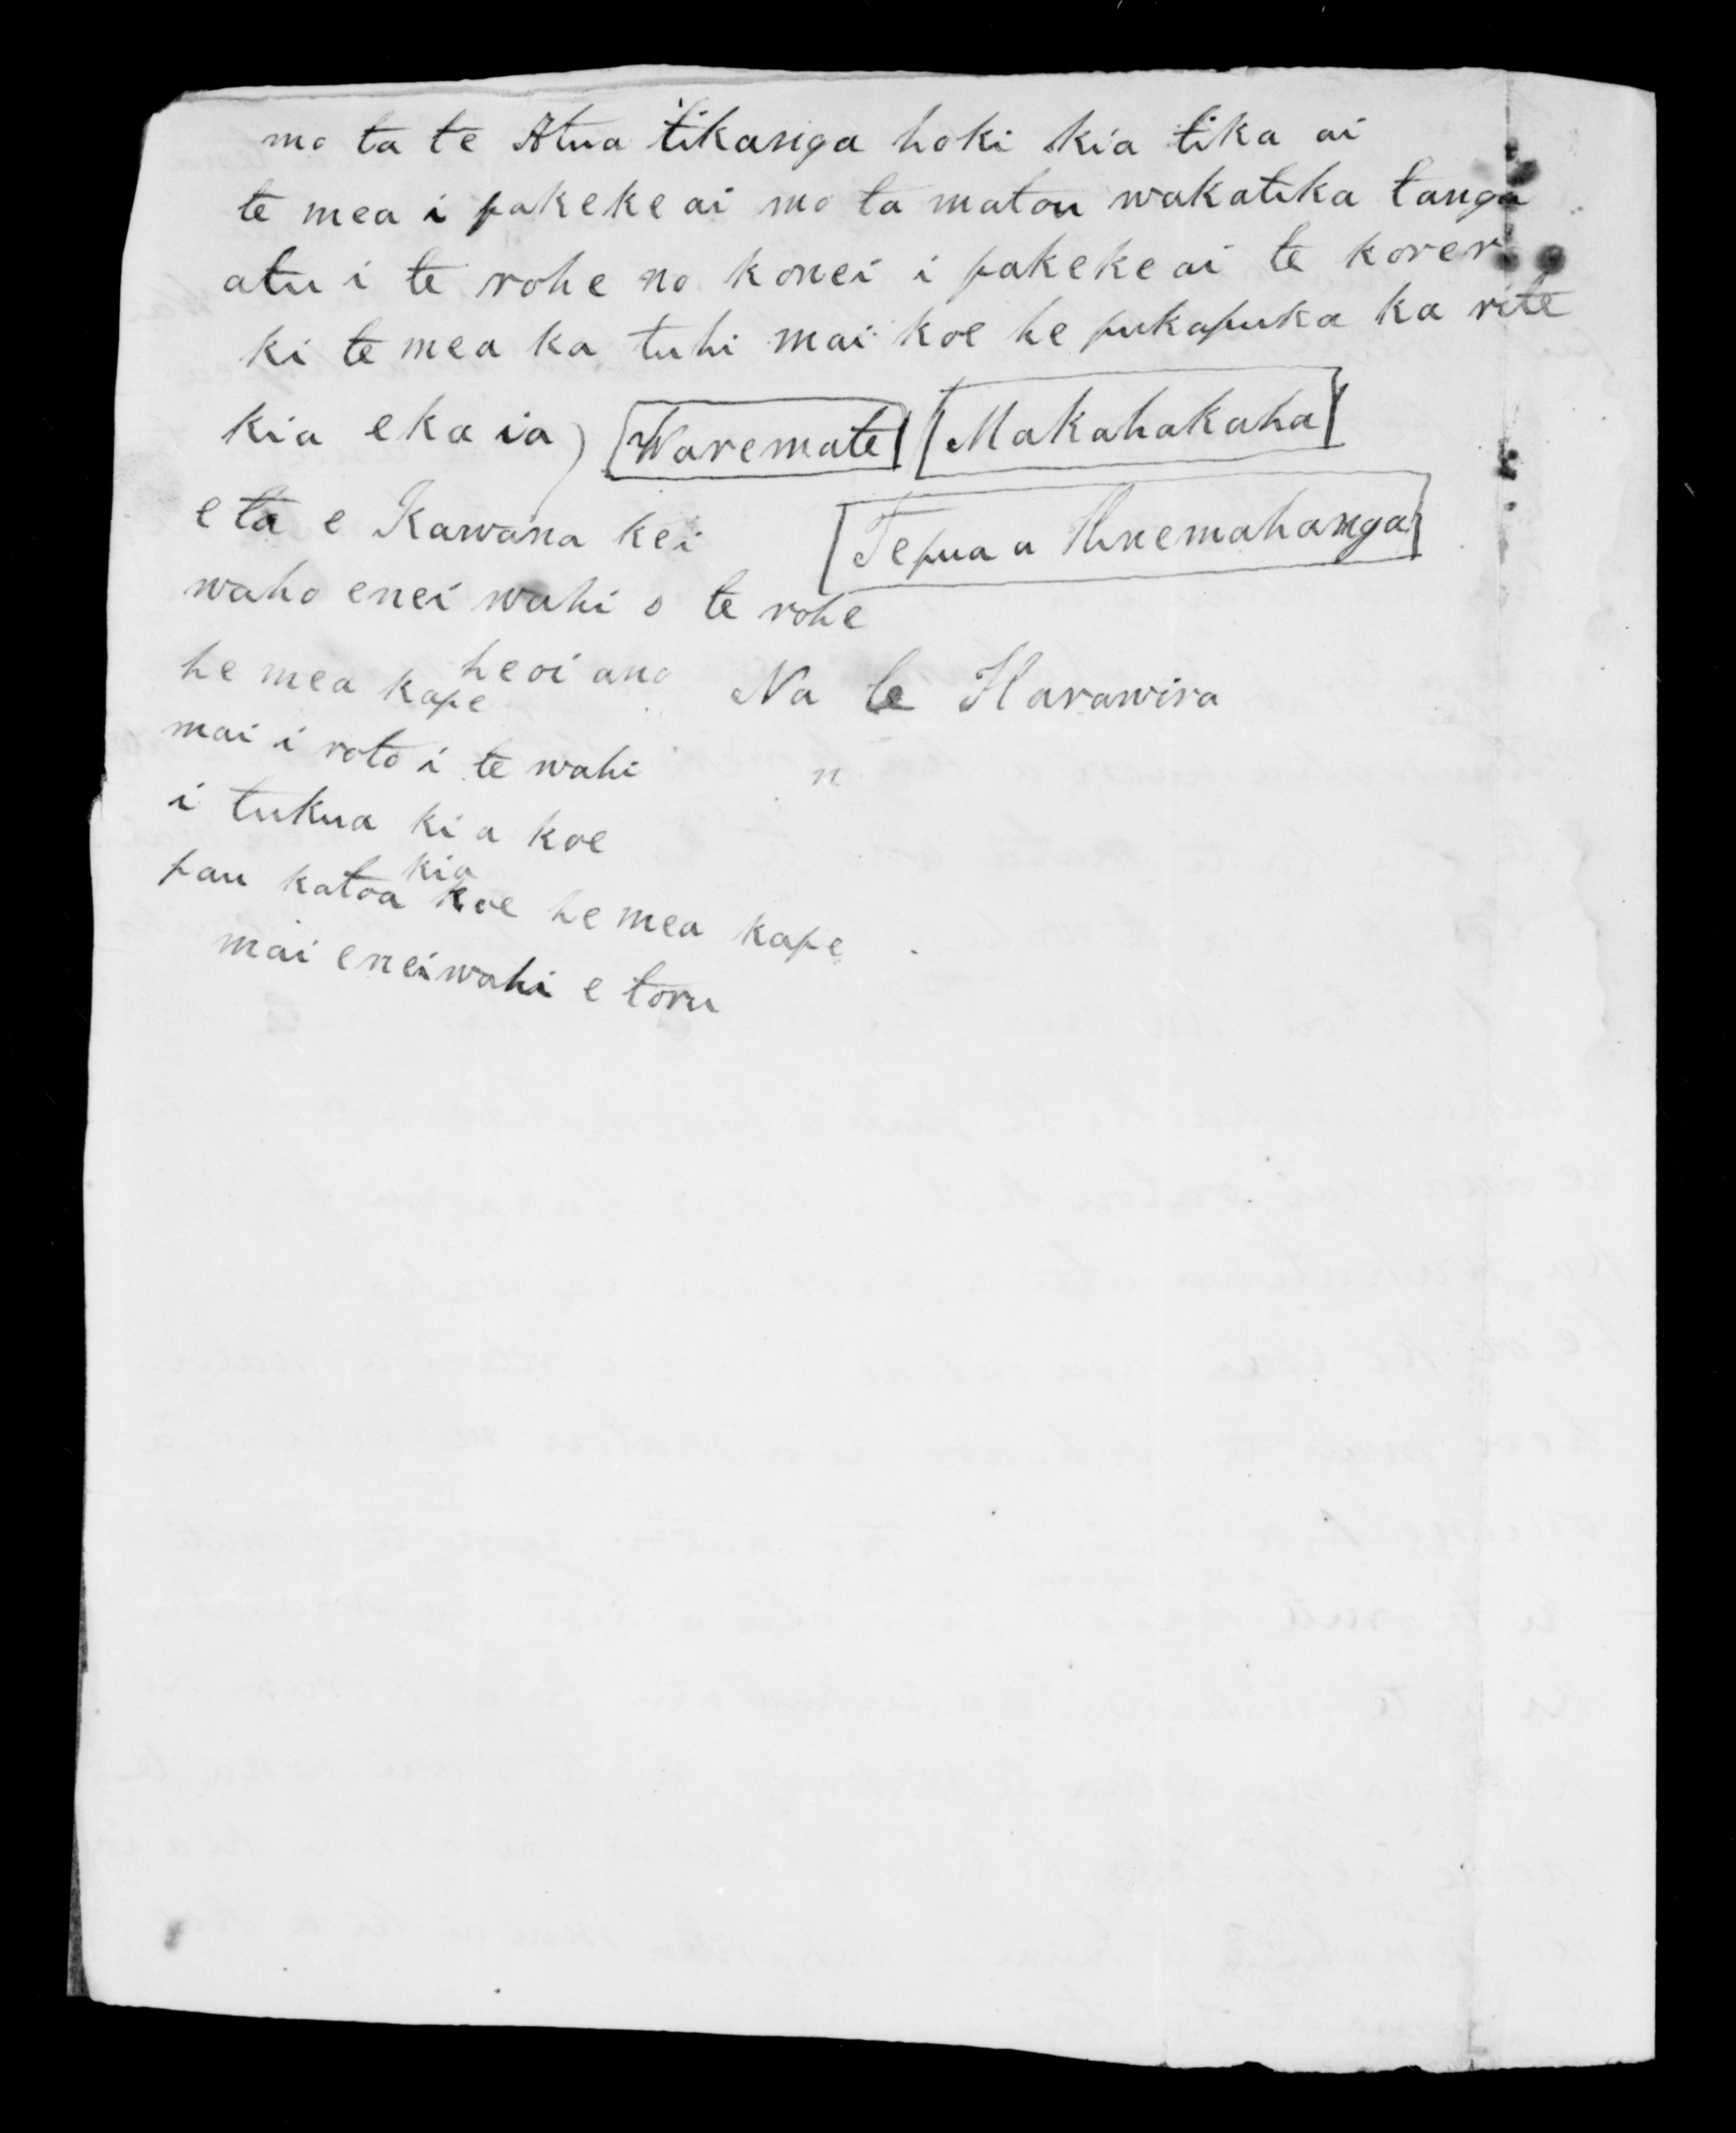 mo ta te Atua tikanga hoki kia tika ai
te mea i pakeke ai mo ta matou wakatika tanga
atu i te rohe no konei i pakeke ai te korer
ki te mea ka tuhi mai koe he pukapuka ka rite
kia eka ia) [Waremate] [Makahakaha]
e ta e Kawana kei [Tepua a Hinemahanga]
waho enei wahi o te rohe
heoi ano Na te Harawira
he mea kape
mai i roto i te wahi
n
i tukua ki a koe
kia
pau katoa koe he mea kape
mai enei wahi e toru